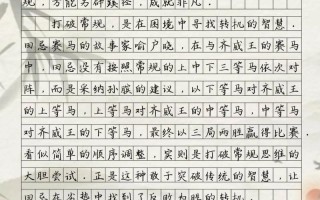 规，方能另辟蹊径，成就非凡。
打破常规，是在困境中寻找转机的智慧，
田忌赛马的故事家喻户晓，在与齐威王的赛马
中，田忌没有按照常规的上中下三等马依次对
阵，而是采纳孙膑的建议，以下等马对齐威王
的上等马，上等马对齐威王的中等马，中等马
对齐威王的下等马，最终以三局两胜赢得比赛，
看似简单的顺序调整，实则是打破常规思维的
大胆尝试，正是这种敢于突破传统的智慧，让
田忌在劣势中找到了反败为胜的转机。